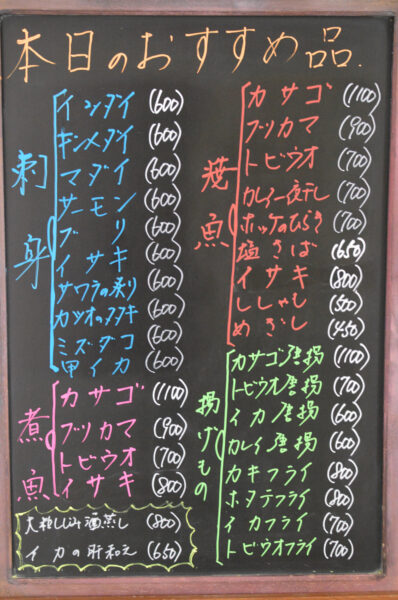 本日のおすすめ品.
刺身
イシダイ (600)
キンメダイ (600)
マダイ (600)
サーモン (600)
ブリ (600)
イサキ (600)
サワラの炙り (600)
カツオのタタキ (600)
ミズダコ (600)
甲イカ (600)
煮魚
カサゴ (1100)
ブツカマ (900)
トビウオ (700)
イサキ (800)
大粒しじみ酒蒸し (800)
イカの肝和え (650)
焼魚
カサゴ (1100)
ブツカマ (900)
トビウオ (700)
カレイ一夜干し (700)
ホッケのひらき (700)
塩さば (650)
イサキ (800)
ししゃも (500)
めざし (450)
揚げもの
カサゴ唐揚 (1100)
トビウオ唐揚 (700)
イカ唐揚 (600)
カレイ唐揚 (600)
カキフライ (800)
ホタテフライ (800)
イカフライ (700)
トビウオフライ (700)